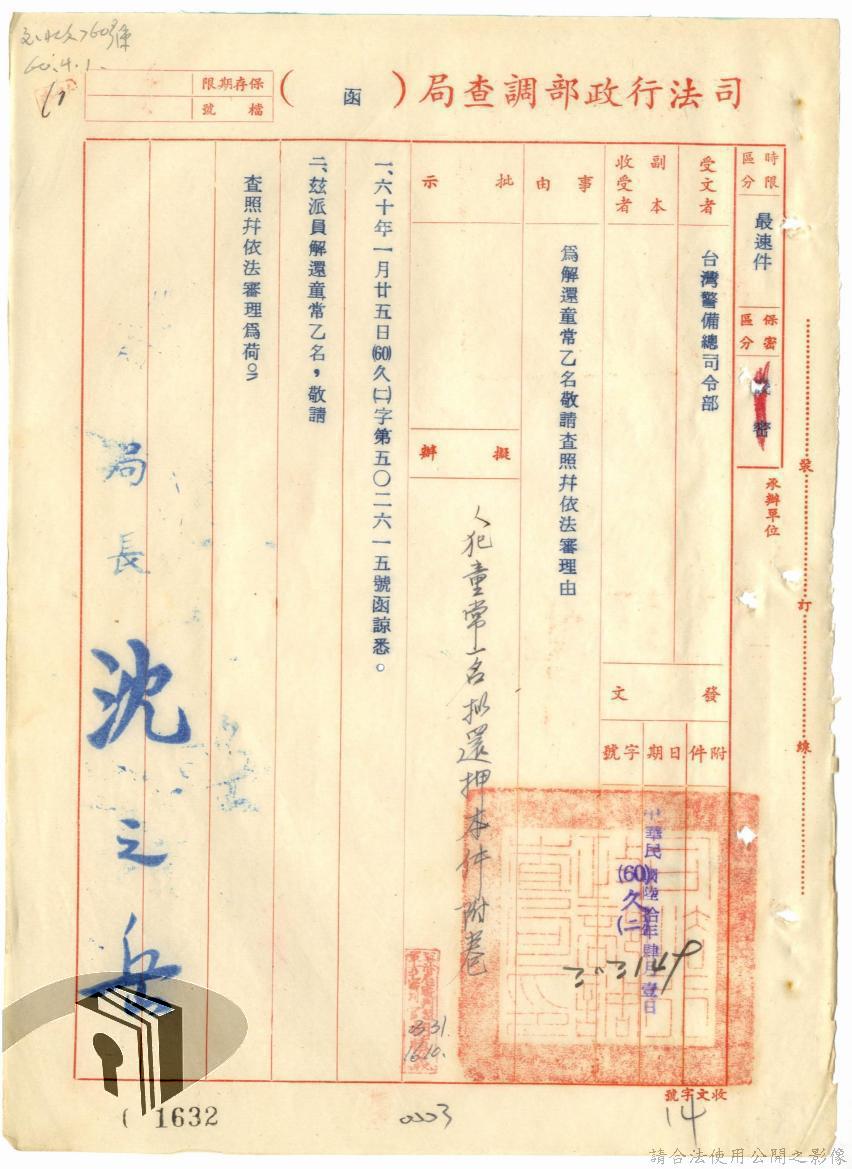 60.4.1.
司法行政部調查局（函）
保存期限
檔號
時限區分
最速件
保密區分
密
承辦單位
受文者
台灣警備總司令部
副本收受者
發文
附件
日期
字號
中華民國陸拾年肆月壹日
(60)久(二)
303149
事由
爲解還童常乙名敬請查照幷依法審理由
批示
擬辦
人犯童常一名擬還押本件附卷
一、六十年一月廿五日(60)久(二)字第五〇二六一五號函諒悉。
二、玆派員解還童常乙名，敬請
查照幷依法審理爲荷。
局長 沈之岳
裝
訂
線
收文字號
14
1632
0003
請合法使用公開之影像